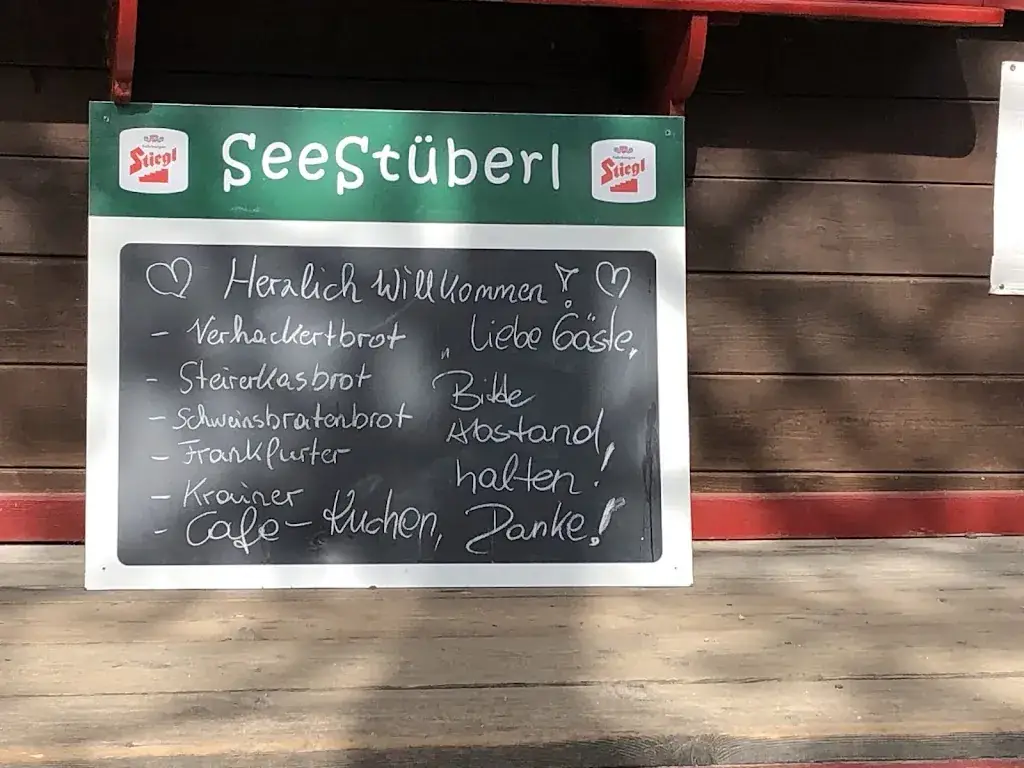 Stiegl SeeStüberl Stiegl
Herzlich Willkommen!
- Verhackertbrot
- Steirerkasbrot
- Schweinsbratenbrot
- Frankfurter
- Krainer
- Cafe - Kuchen,
" Liebe Gäste,
Bitte
Abstand
halten!
Danke!